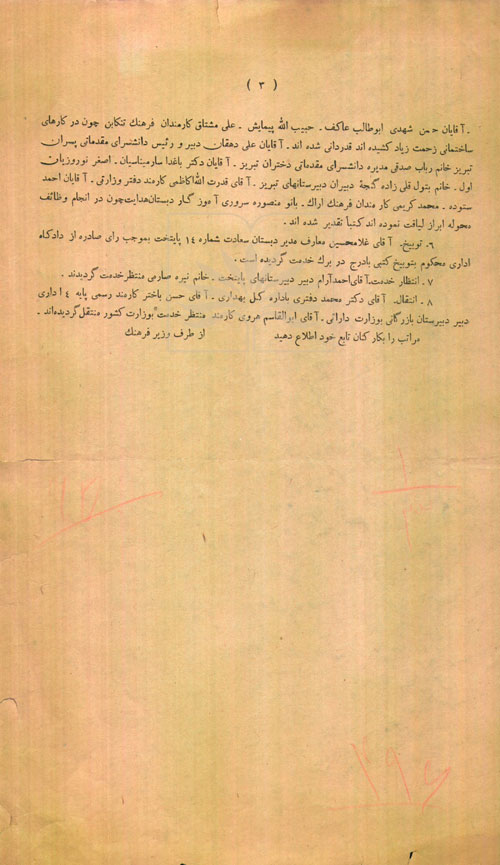 ( ۳ )
ـ آقایان حسن شهدی ابوطالب عاکف ـ حبیب الله پیمایش ـ علی مشتاق کارمندان فرهنك تنکابن چون در کارهای
ساختمانی زحمت زیاد کشیده اند قدردانی شده اند ـ آقایان علی دهقان دبیر و رئیس دانشسرای مقدماتی پسران
تبریز خانم رباب صدقی مدیره دانشسرای مقدماتی دختران تبریز ـ آقایان دکتر باغدا سارمیناسیان ـ اصغر نوروزیان
اول ـ خانم بتول قلی زاده گنجهٔ دبیران دبیرستانهای تبریز ـ آقای قدرت الله کاظمی کارمند دفتر وزارتی ـ آقایان احمد
ستوده ـ محمد کریمی کارمندان فرهنك اراك ـ بانو منصوره سروری آموزگار دبستان هدایت چون در انجام وظائف
محوله ابراز لیاقت نموده اند کتباً تقدیر شده اند .
۶ ـ توبیخ ـ آقای غلامحسین معارف مدیر دبستان سعادت شماره ۱۴ پایتخت بموجب رای صادره از دادگاه
اداری محکوم بتوبیخ کتبی بادرج در برك خدمت گردیده است .
۷ ـ انتظار خدمت ـ آقای احمد آرام دبیر دبیرستانهای پایتخت ـ خانم نیره صارمی منتظر خدمت گردیدند .
۸ ـ انتقال ـ آقای دکتر محمد دفتری باداره کل بهداری ـ آقای حسن باختر کارمند رسمی پایه ۴ اداری
دبیر دبیرستان بازرگانی بوزارت دارائی ـ آقای ابوالقاسم هروی کارمند منتظر خدمت بوزارت کشور منتقل گردیده اند .
مراتب را بکارکنان تابع خود اطلاع دهید از طرف وزیر فرهنك